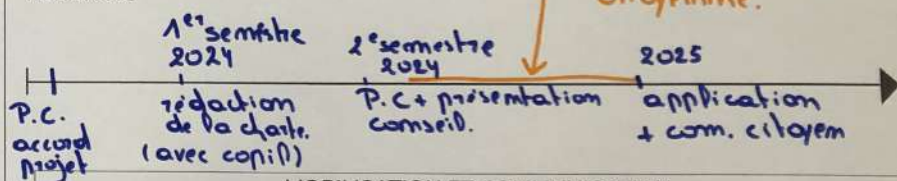 citoyenne.
1er semestre
2024
2e semestre
2024
2025
P.C.
accord
projet
rédaction
de la charte.
(avec copil)
P.C + présentation
conseil.
application
+ com. citoyen